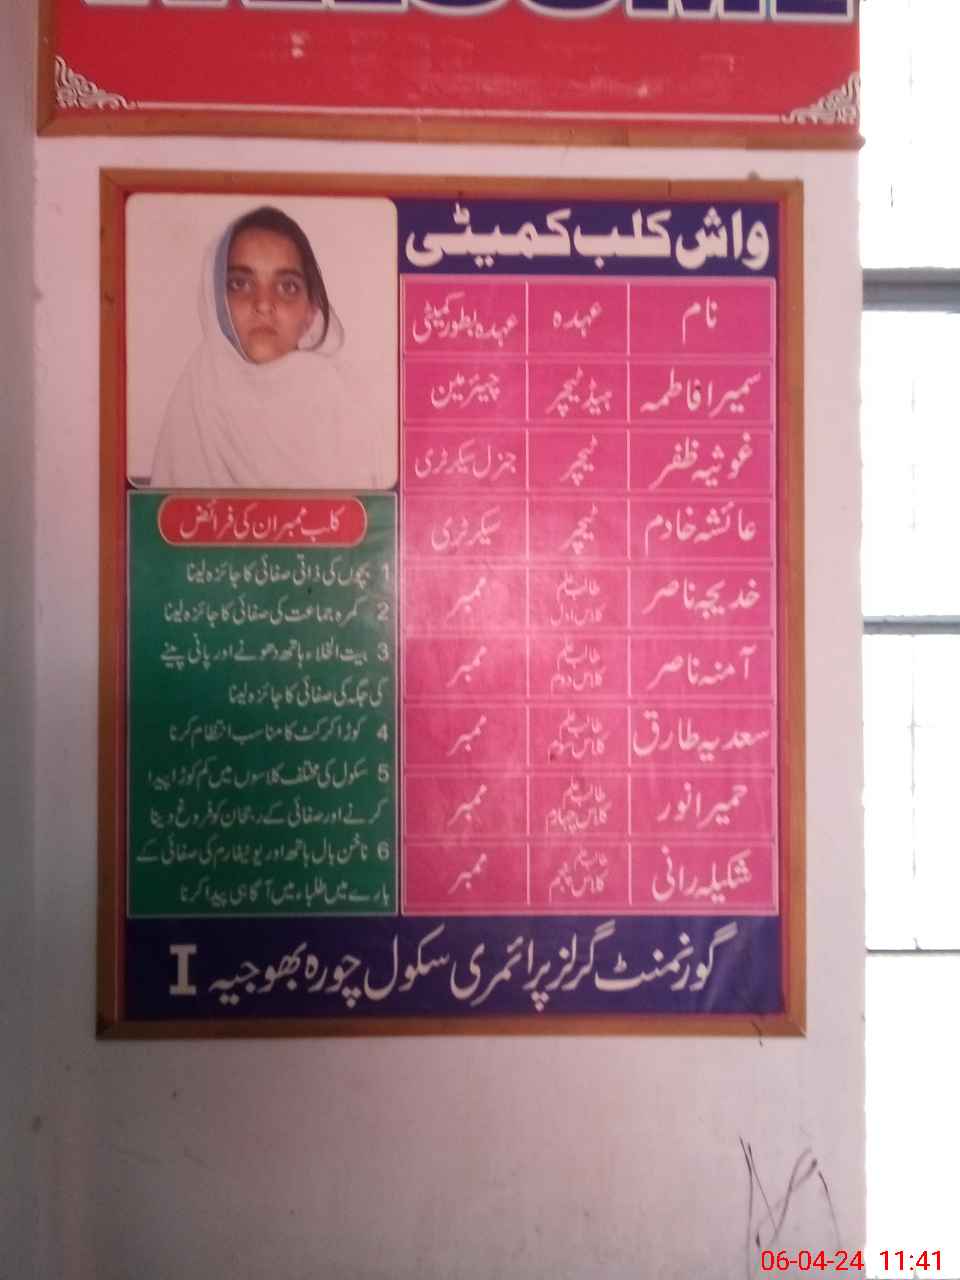 WELCOME
واش کلب کمیٹی
نام عہدہ عہدہ بطور کمیٹی
سمیرا فاطمہ ہیڈ ٹیچر چیئرمین
غوثیہ ظفر ٹیچر جنرل سیکرٹری
عائشہ خادم ٹیچر سیکرٹری
خدیجہ ناصر طالب علم کلاس اول ممبر
آمنہ ناصر طالب علم کلاس دوم ممبر
سعدیہ طارق طالب علم کلاس سوم ممبر
حمیرا انور طالب علم کلاس چہارم ممبر
شکیلہ رانی طالب علم کلاس پنجم ممبر
کلب ممبران کی فرائض
1 بچوں کی ذاتی صفائی کا جائزہ لینا
2 کمرہ جماعت کی صفائی کا جائزہ لینا
3 بیت الخلاء ہاتھ دھونے اور پانی پینے
کی جگہ کی صفائی کا جائزہ لینا
4 کوڑا کرکٹ کا مناسب انتظام کرنا
5 سکول کی مختلف کلاسوں میں کم کوڑا پیدا
کرنے اور صفائی کے رجحان کو فروغ دینا
6 ناخن بال ہاتھ اور یونیفارم کی صفائی کے
بارے میں طلباء میں آگاہی پیدا کرنا
گورنمنٹ گرلز پرائمری سکول چورہ بھوجیہ I
06-04-24 11:41